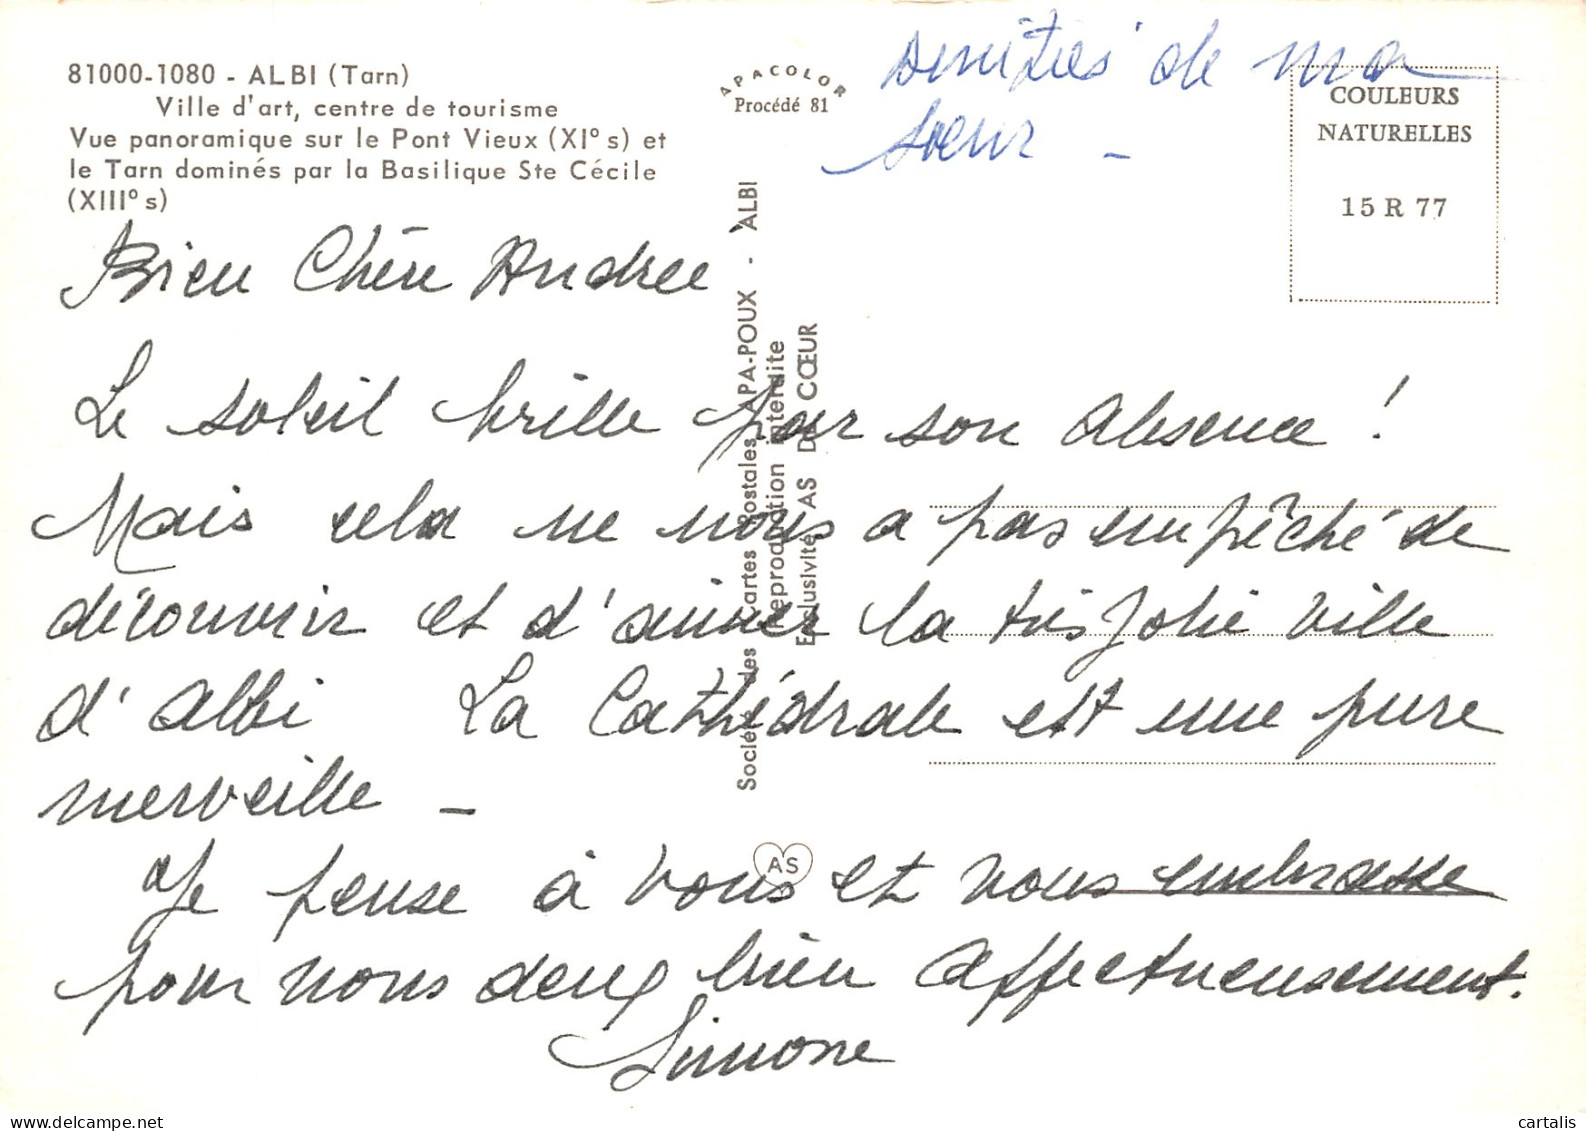 81000-1080 - ALBI (Tarn)
Ville d'art, centre de tourisme
Vue panoramique sur le Pont Vieux (XI° s) et
le Tarn dominés par la Basilique Ste Cécile
(XIII° s)
APACOLOR
Procédé 81
Amitiés de ma
soeur -
COULEURS
NATURELLES
15 R 77
Société des Cartes Postales APA-POUX - ALBI
Reproduction interdite
Exclusivité AS DE CŒUR
Bien Chère Andree
Le soleil brille par son absence !
Mais cela ne nous a pas empêché de
découvrir et d'aimer la très jolie ville
d'Albi La Cathédrale est une pure
merveille -
AS
Je pense à vous et vous embrasse
pour nous deux bien affectueusement.
Simone
cartalis